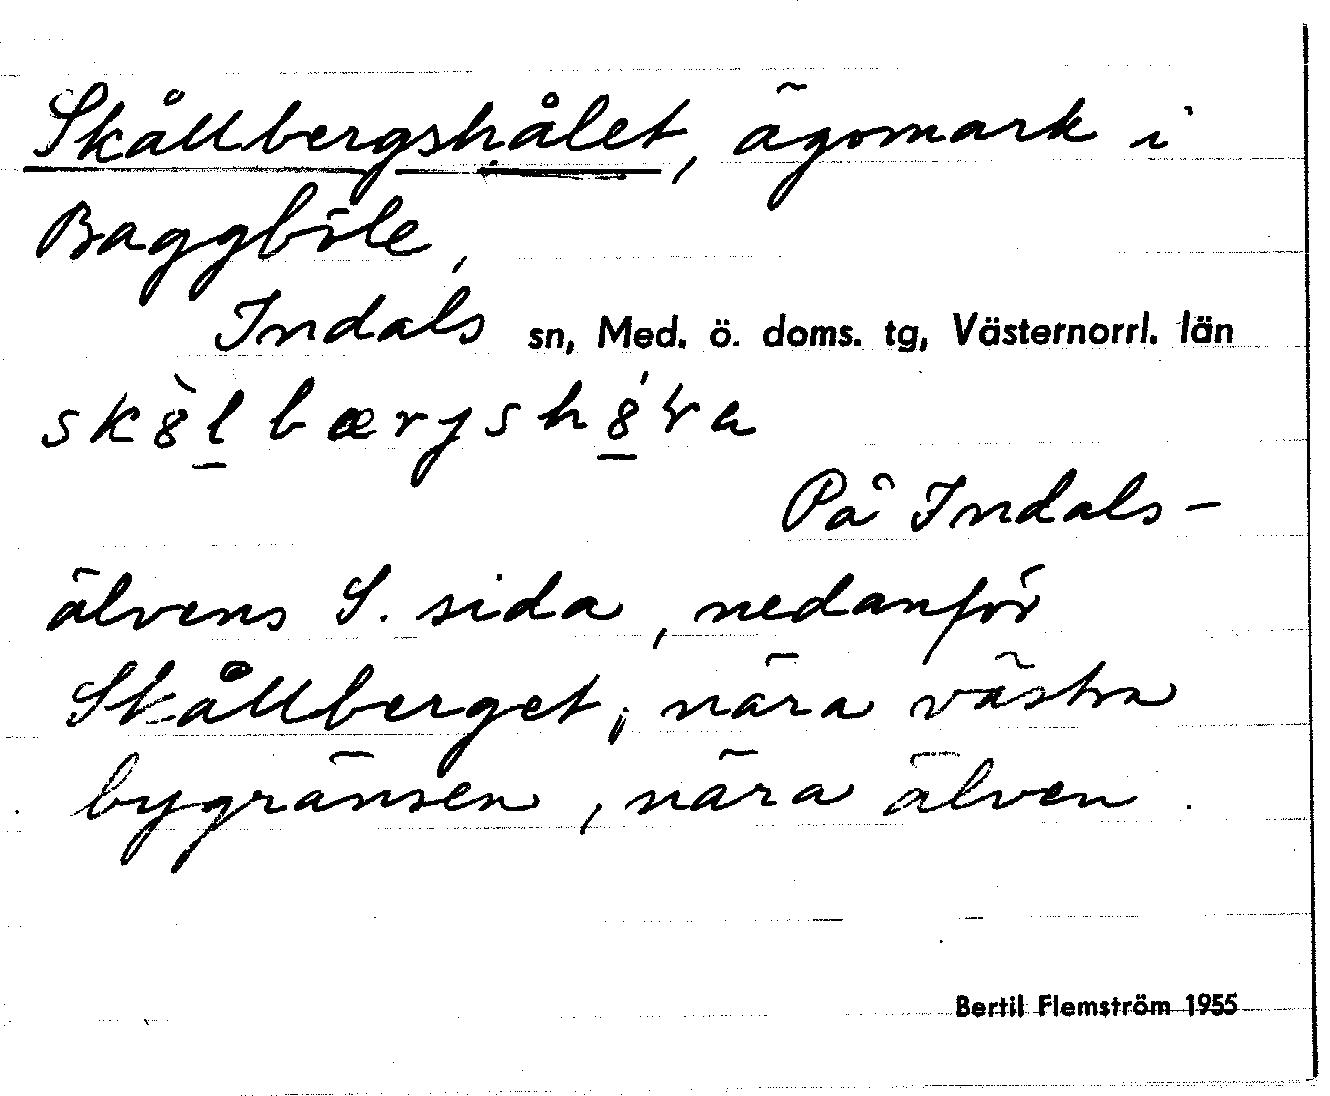 Skållbergshålet, ägomark i
Baggböle,
Indals sn, Med. ö. doms. tg, Västernorrl. län
På Indals-
älvens S. sida, nedanför
Skållberget, nära västra
bygränsen, nära älven.
Bertil Flemström 1955